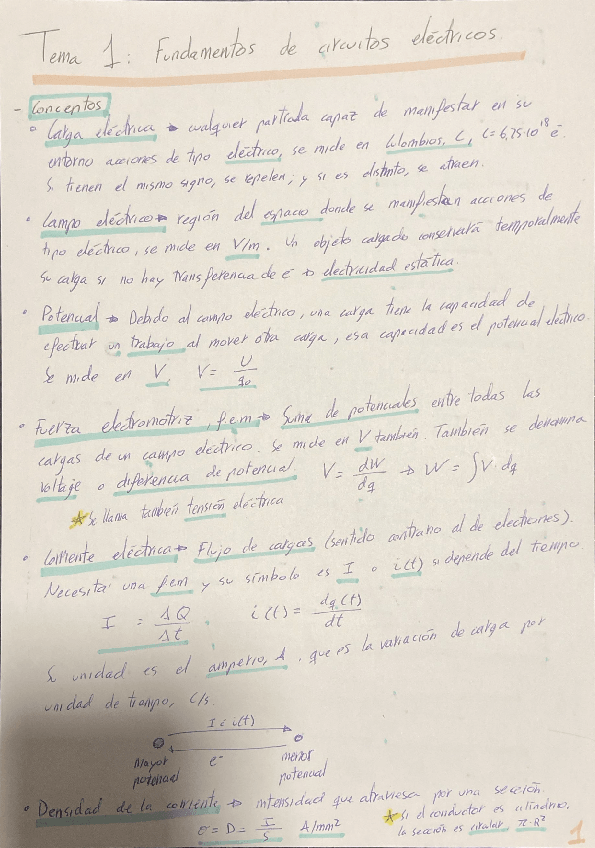 Tema 1: Fundamentos de circuitos eléctricos.
- Conceptos
• Carga eléctrica → cualquier partícula capaz de manifestar en su
entorno acciones de tipo eléctrico, se mide en Culombios, C, C=6,25·10¹⁸ e⁻.
Si tienen el mismo signo, se repelen; y si es distinto, se atraen.
• Campo eléctrico → región del espacio donde se manifiestan acciones de
tipo eléctrico, se mide en V/m. Un objeto cargado conservará temporalmente
su carga si no hay transferencia de e⁻ → electricidad estática.
• Potencial → Debido al campo eléctrico, una carga tiene la capacidad de
efectuar un trabajo al mover otra carga, esa capacidad es el potencial eléctrico.
Se mide en V. V = U/q₀
• Fuerza electromotriz, f.e.m → Suma de potenciales entre todas las
cargas de un campo eléctrico. Se mide en V también. También se denomina
voltaje o diferencia de potencial. V = dW/dq → W = ∫V·dq
★ Se llama también tensión eléctrica
• Corriente eléctrica → Flujo de cargas (sentido contrario al de electrones).
Necesita una fem y su símbolo es I o i(t) si depende del tiempo
I = ΔQ/Δt i(t) = dq(t)/dt
Su unidad es el amperio, A, que es la variación de carga por
unidad de tiempo, C/s.
I i i(t)
e⁻
mayor potencial
menor potencial
• Densidad de la corriente → intensidad que atraviesa por una sección.
σ = D = I/S A/mm²
★ si el conductor es cilíndrico,
la sección es circular, π·R²
1